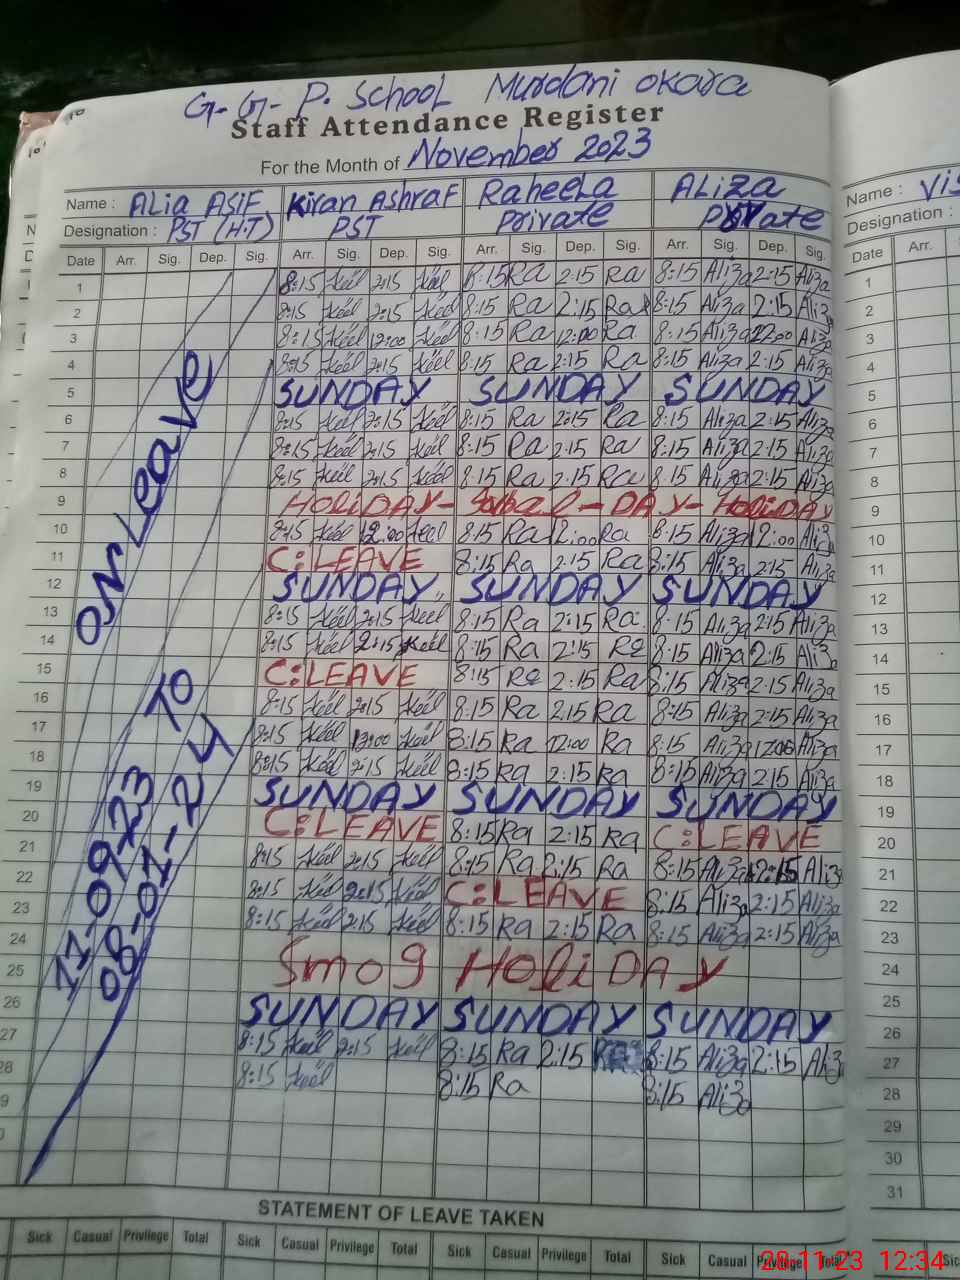 G-G-P. School Murdani okara
Staff Attendance Register
For the Month of November 2023
Name : ALia ASIF Kiran Ashraf Raheela ALiza
Designation : PST (H.T) PST Private Private
Date Arr. Sig. Dep. Sig. Arr. Sig. Dep. Sig. Arr. Sig. Dep. Sig. Arr. Sig. Dep. Sig.
1 8:15 2:15 8:15 Ra 2:15 Ra 8:15 Aliza 2:15 Aliza
2 8:15 2:15 8:15 Ra 2:15 Ra 8:15 Aliza 2:15 Aliza
3 8:15 12:00 8:15 Ra 12:00 Ra 8:15 Aliza 12:00 Aliza
4 8:15 2:15 8:15 Ra 2:15 Ra 8:15 Aliza 2:15 Aliza
5 SUNDAY SUNDAY SUNDAY
6 8:15 2:15 8:15 Ra 2:15 Ra 8:15 Aliza 2:15 Aliza
7 8:15 2:15 8:15 Ra 2:15 Ra 8:15 Aliza 2:15 Aliza
8 8:15 2:15 8:15 Ra 2:15 Ra 8:15 Aliza 2:15 Aliza
9 HoliDAY- - DAY- HoliDAY
10 8:15 12:00 8:15 Ra 12:00 Ra 8:15 Aliza 12:00 Aliza
11 C:LEAVE 8:15 Ra 2:15 Ra 8:15 Aliza 2:15 Aliza
12 SUNDAY SUNDAY SUNDAY
13 8:15 2:15 8:15 Ra 2:15 Ra 8:15 Aliza 2:15 Aliza
14 8:15 2:15 8:15 Ra 2:15 Ra 8:15 Aliza 2:15 Aliza
15 C:LEAVE 8:15 Ra 2:15 Ra 8:15 Aliza 2:15 Aliza
16 8:15 2:15 8:15 Ra 2:15 Ra 8:15 Aliza 2:15 Aliza
17 8:15 12:00 8:15 Ra 12:00 Ra 8:15 Aliza 12:00 Aliza
18 8:15 2:15 8:15 Ra 2:15 Ra 8:15 Aliza 2:15 Aliza
19 SUNDAY SUNDAY SUNDAY
20 C:LEAVE 8:15 Ra 2:15 Ra C:LEAVE
21 8:15 2:15 8:15 Ra 2:15 Ra 8:15 Aliza 2:15 Aliza
22 8:15 2:15 C:LEAVE 8:15 Aliza 2:15 Aliza
23 8:15 2:15 8:15 Ra 2:15 Ra 8:15 Aliza 2:15 Aliza
24
25 Smog HoliDAY
26 SUNDAY SUNDAY SUNDAY
27 8:15 2:15 8:15 Ra 2:15 8:15 Aliza 2:15 Aliza
28 8:15 8:15 Ra 8:15 Aliza
29
30
31
ON Leave
11-09-23 TO
08-01-24
STATEMENT OF LEAVE TAKEN
Sick Casual Privilege Total Sick Casual Privilege Total Sick Casual Privilege Total Sick Casual Privilege Total
Name :
Designation :
Date Arr.
1
2
3
4
5
6
7
8
9
10
11
12
13
14
15
16
17
18
19
20
21
22
23
24
25
26
27
28
29
30
31
28.11.23 12:34